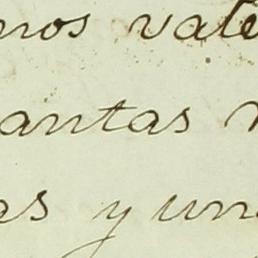 nos vale
antas
es y un